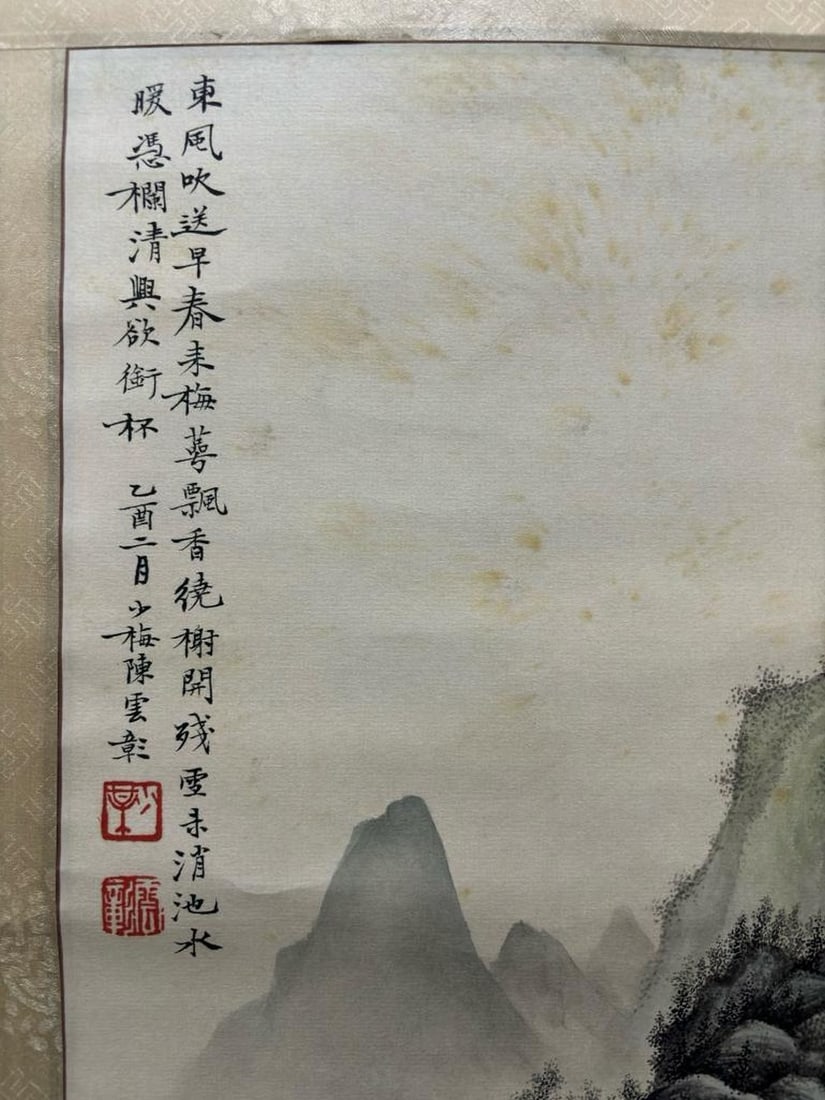 東風吹送早春来梅萼飄香繞榭開殘雪未消池水
暖憑欄清興欲銜杯 乙酉二月小梅陳雲彰